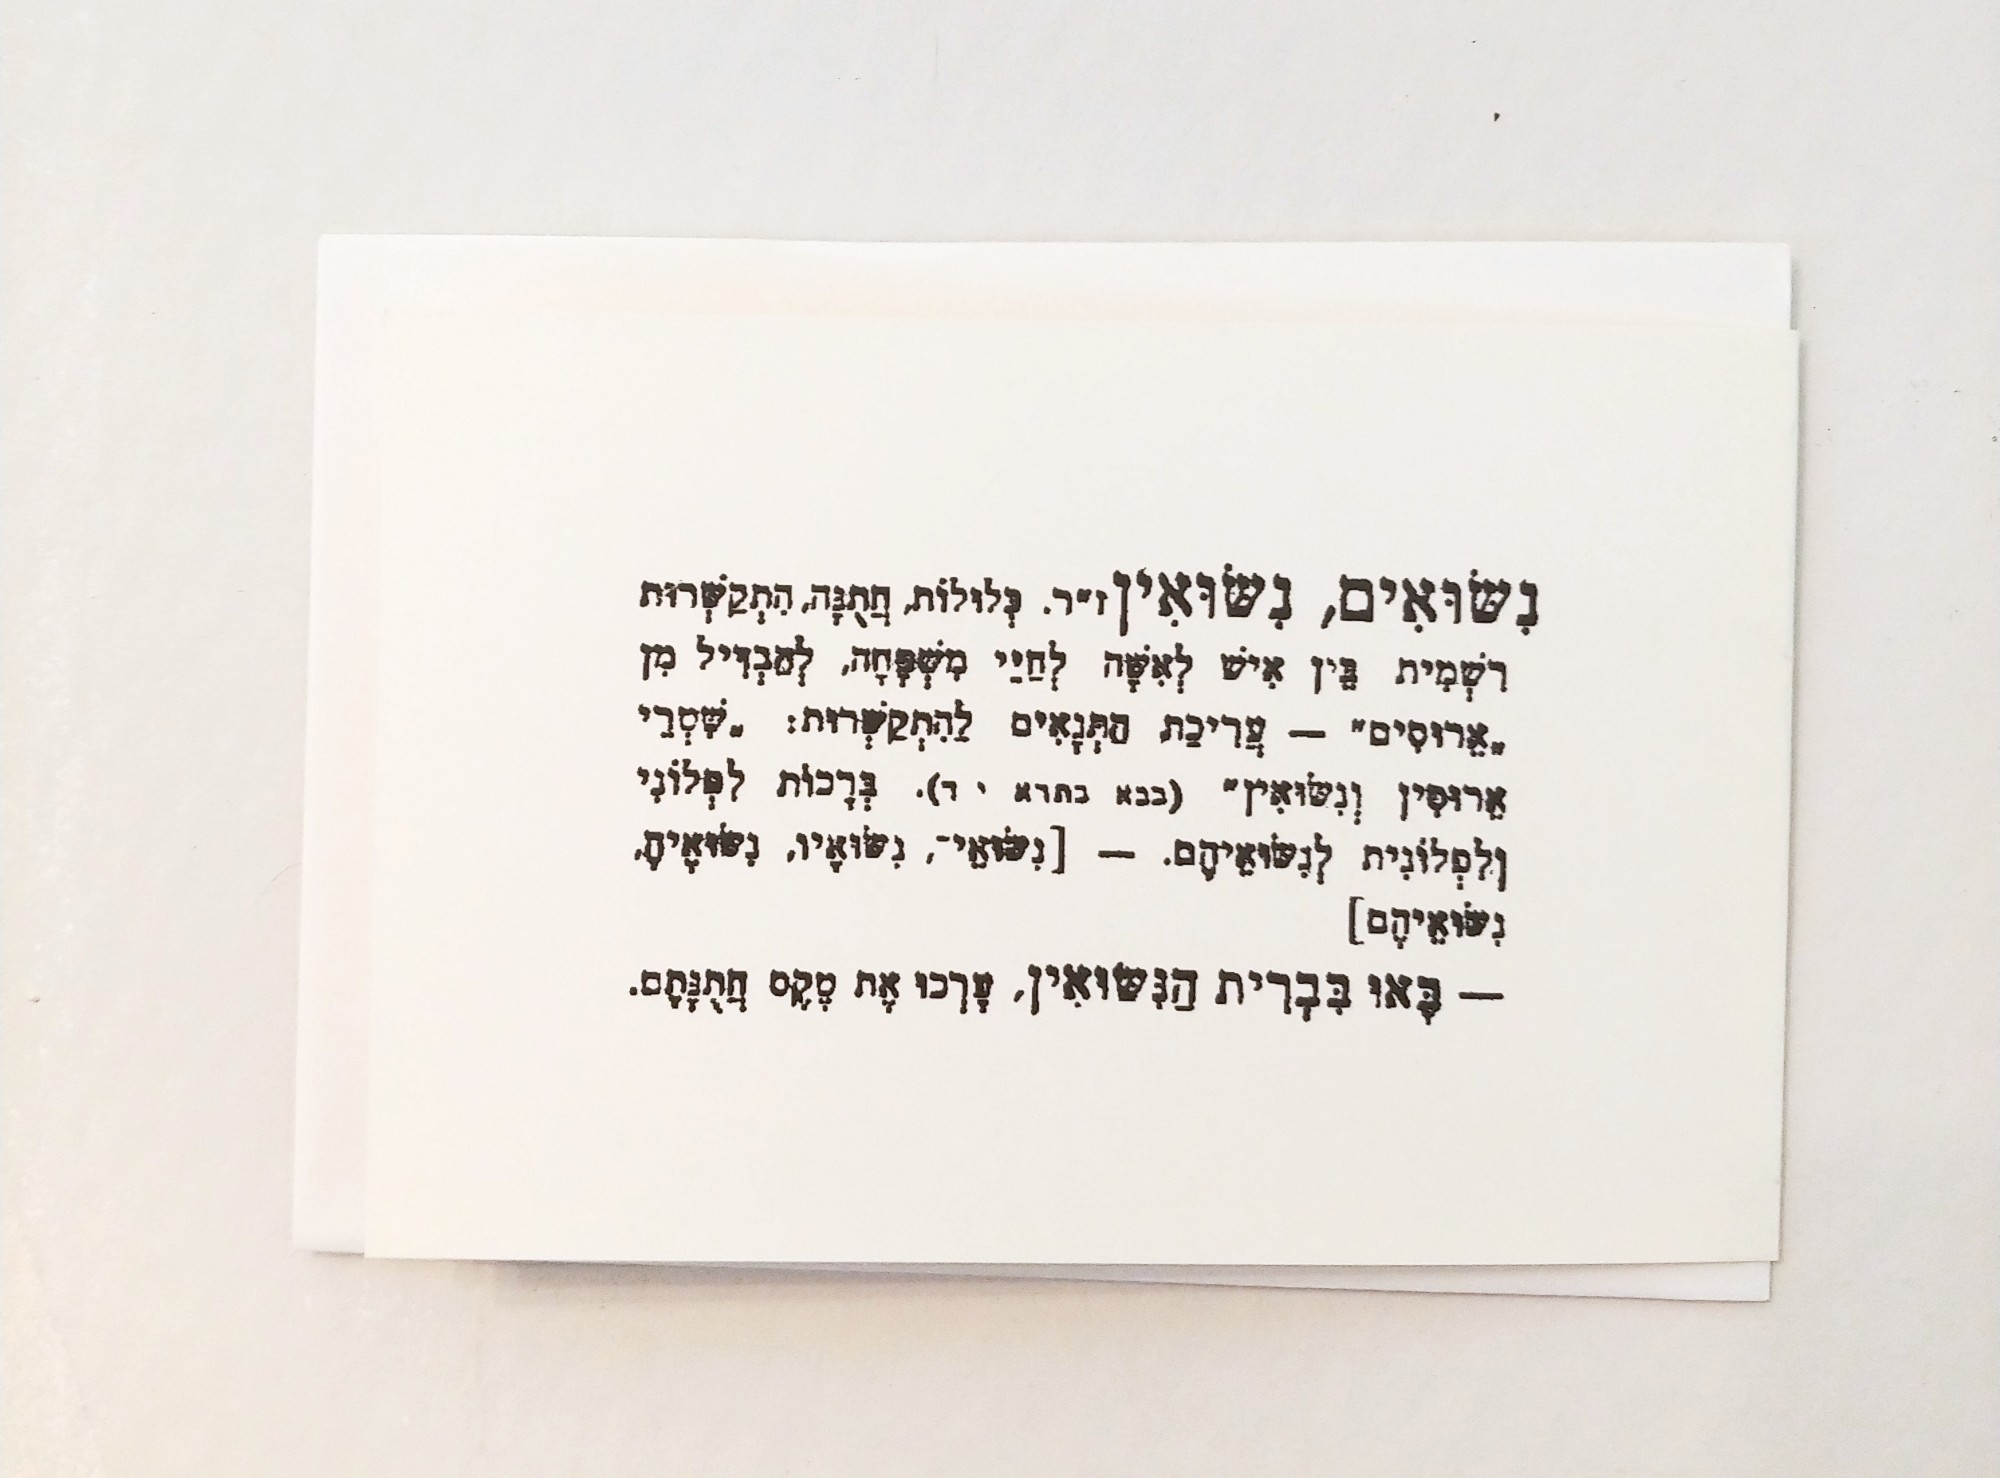 נִשּׂוּאִים, נִשּׂוּאִין ז״ר. כְּלוּלוֹת, חֲתֻנָּה, הִתְקַשְּׁרוּת
רִשְׁמִית בֵּין אִישׁ לְאִשָּׁה לְחַיֵּי מִשְׁפָּחָה, לְהַבְדִּיל מִן
„אֵרוּסִים״ — עֲרִיכַת הַתְּנָאִים לַהִתְקַשְּׁרוּת: „שִׁטְרֵי
אֵרוּסִין וְנִשּׂוּאִין״ (בבא בתרא י ד). בְּרָכוֹת לִפְלוֹנִי
וְלִפְלוֹנִית לְנִשּׂוּאֵיהֶם. — [נִשּׂוּאֵי־, נִשּׂוּאָיו, נִשּׂוּאֶיהָ,
נִשּׂוּאֵיהֶם]
— בָּאוּ בִּבְרִית הַנִּשּׂוּאִין, עָרְכוּ אֶת טֶקֶס חֲתֻנָּתָם.